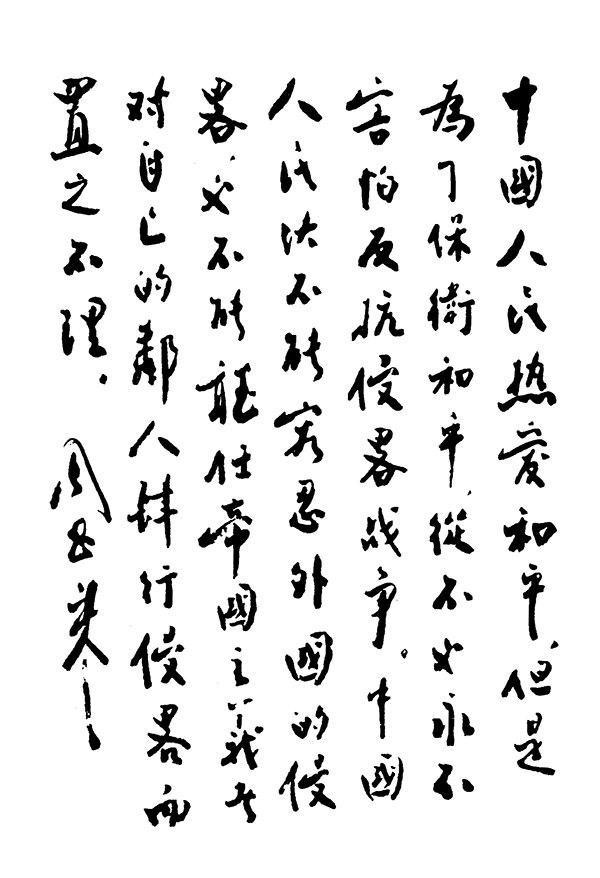 中國人民热爱和平，但是
為了保衛和平，從不也永不
害怕反抗侵畧战争。中國
人民决不能容忍外國的侵
畧，也不能聽任帝國主義者
对自己的鄰人肆行侵畧而
置之不理。 周恩来